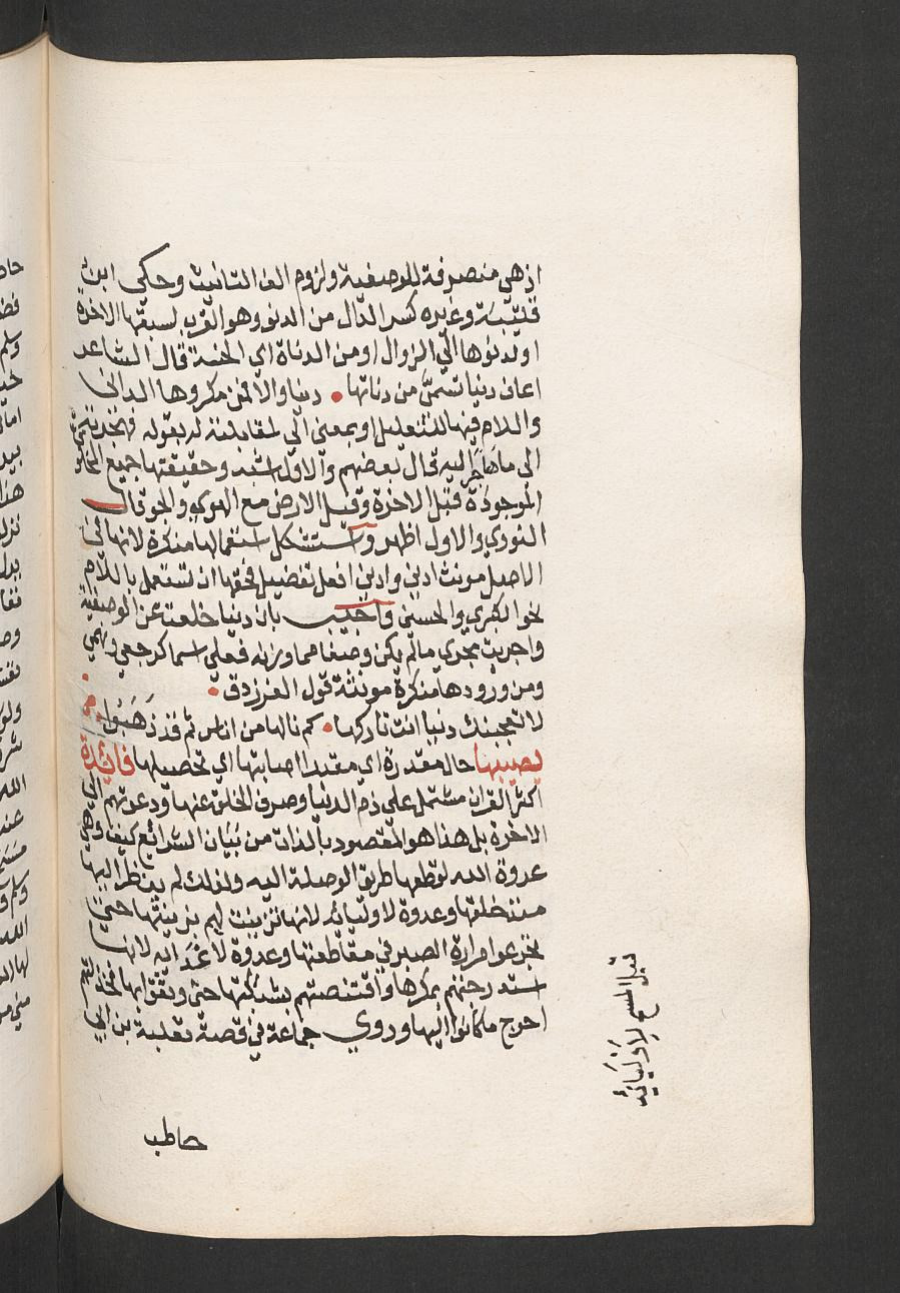 اذ هي منصرفة للوصفية ولزوم الف التانيث وحكى ابن
قتيبة وغيره كسر الدال من الدنو وهو القرب لسبقها الاخرة
او لدنوها الى الزوال او من الدناة اي الخسة قال الشاعر
اعاف دنيا تسمى من دناتها • دنيا والا فمن مكروها الدانى
واللام فيها للتعليل او بمعنى الى لمقابلته له بقوله فهجرته
الى ما هَاجَرَ اليه قال بعضهم والاول اشبه وحقيقتها جميع المخلو
الموجودة قبل الاخرة وقيل الارض مع الهوي والجو قال
النووي والاول اظهر واستشكل استعمالها منكرة لانها في
الاصل مونث ادني وادني افعل تفضيل فحقها ان تستعمل باللام
نحو الكبري والحسني واجيب بان دنيا خلعت عن الوصفية
واجريت مجري ما لم يكن وصفا مما وزنه فعلي اسما كرجعي وبهمي
ومن ورودها منكرة مونثة قول الفرزدق •
لا تعجبنك دنيا انت تاركها • كم نالها من اناس ثم قد ذَهَبُوا
يصيبها حال مقدرة اي مقدرا اصابتها اي تحصيلها فائدة
اكثر القران مشتمل على ذم الدنيا وصرف الخلق عنها ودعوتهم الى
الاخرة بل هذا هو المقصود بالذات من بيان الشرائع كيف وهي
عدوة الله لقطعها طريق الوصلة اليه ولذلك لم ينظر اليها
منذ خلقها وعدوة لاوليائه لانها تزينت لهم بزينتها حتى
تجرعوا مرارة الصبر في مقاطعتها وعدوة لاعدَائه لانها
استدرجتهم بمكرها واقتنصتهم بشبكتها حتى وثقوا بها فخذلتهم
احوج ما كانوا اليها وروي جماعة في قصة ثعلبة بن ابي
حاطب